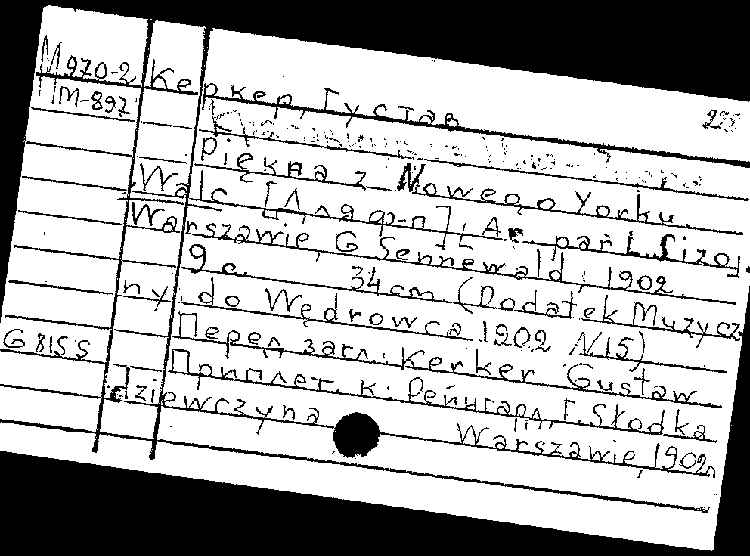 М970-2 Керкер, Густав 235
ПМ-897
Piękna z Nowego Yorku.
Walc. [Для ф-п]; Ar. par L. Sizoj.
Warszawie, G Sennewald, 1902.
9 с. 34 cm (Dodatek Muzycz
ny do Wędrowca 1902 N15)
G 815 S Перед загл.: Kerker Gustaw
Приплет. к: Рейнгард, Г. Słodka
dziewczyna Warszawie, 1902.